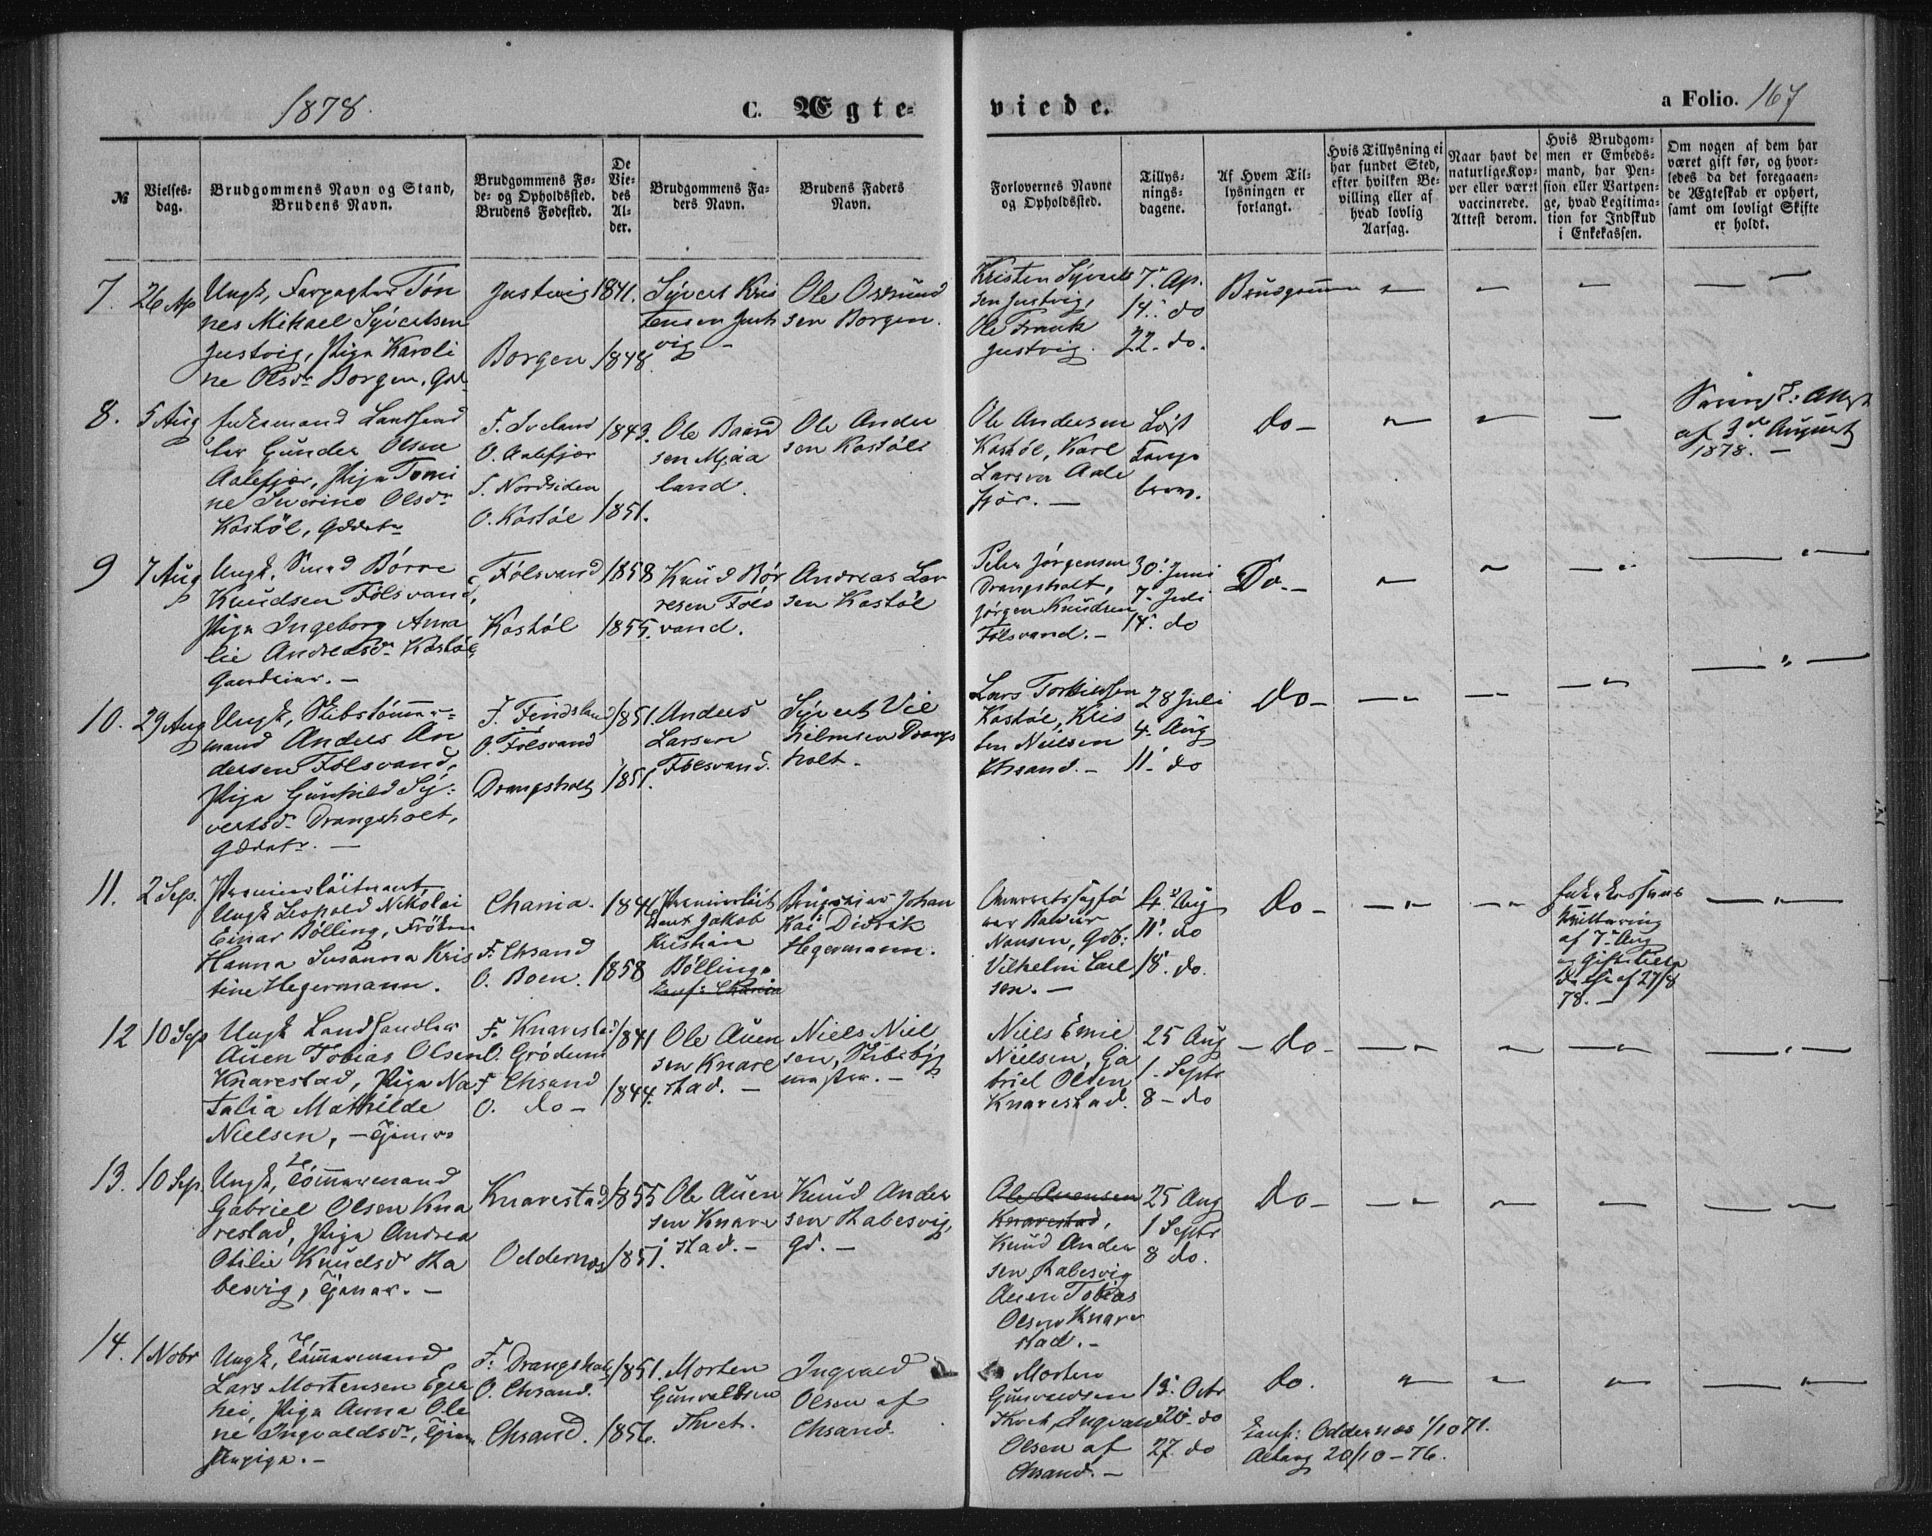 1878.
C. Ægte-
viede.
a Folio. 167
№
Vielses-
dag.
Brudgommens Navn og Stand,
Brudens Navn.
Brudgommens Fø-
de- og Opholdssted.
Brudens Fødested.
De
Vie-
des
Al-
der.
Brudgommens Fa-
ders Navn.
Brudens Faders
Navn.
Forlovernes Navne
og Opholdssted.
Tillys-
nings-
dagene.
Af Hvem Til-
lysningen er
forlangt.
Hvis Tillysning ei
har fundet Sted,
efter hvilken Be-
villing eller af
hvad lovlig
Aarsag.
Naar havt de
naturlige Kop-
per eller været
vaccinerede.
Attest derom.
Hvis Brudgom-
men er Embeds-
mand, har Pen-
sion eller Vartpen-
ge, hvad Legitima-
tion for Indskud
i Enkekassen.
Om nogen af dem har
været gift før, og hvor-
ledes da det foregaaen-
de Ægteskab er ophørt,
samt om lovligt Skifte
er holdt.
7.
26 Ap
Ungk, Forpagter Tön
nes Mikael Syvertsen
Justvig, Piga Karoli
ne Olsdr Borgen,
Justvig
Borgen
1841.
1848.
Syvert Kris
tensen Just
vig
Ole Osmund
sen Borgen.
Kristen Syverts
sen Justvig,
Ole Frank
Justvig.
7. Ap.
14. do
22. do.
Brudgommen
8.
5 Aug
Landhand
ler Gunder Olsen
Aalefjær, Piga Tomi
ne Severine Olsdr
Kostöl,
F. Iveland
O. Aalefjær
F. Nordsiden
O. Kostöl
1843.
1851.
Ole Baard
sen Mjaa
land.
Ole Ander
sen Kostöl
Ole Andersen
Kostöl, Karl
Larsen Aale
fjær. -
Löst
Do -
af 3de August
1878. -
9
7 Aug
Ungk,
Knudsen Fölsvand,
Piga Ingeborg Ama
lie Andreasdr Kostöl
Fölsvand
Kostöl
1858
1855.
Knud Bör
resen Föls
vand.
Andreas Lar
sen Kostöl
Peder Jörgensen
Drangsholt,
Jörgen Knudsen
Fölsvand. -
30. Juni
7. Juli
14. do
Do. -
10.
29 Aug
Ungk, Skibstömmer-
mand Anders An
dersen Fölsvand,
Piga Gunhild Sy-
vertsd. Drangsholt,
F. Findsland
O. Fölsvand
Drangsholt
1851.
1851.
Anders
Larsen
Fölsvand.
Syvert Vil
helmsen Drangs
holt.
Lars Torkildsen
Kostöl, Kris
ten Nielsen
Chrsand. -
28 Juli
4. Aug
11. do
Do -
11.
2 Sep.
Premierlöitnant
Ungk Leopold Nikolai
Einar Bölling, Fröken
Hanna Susanna Kris
tine Hegermann.
Chania.
F. Chrsand
O. Boen.
1846
1858
Premierlöit
nant Jakob
Kristian
Bölling
Johan
Kai Didrik
Hegermann.
Overretssagfö
rer
Nansen, Gdb:
Vilhelm Carl
sen. -
4. Aug
11. do
18. do.
Do -
Enkekassens
Kvittering
af 7. Aug
af 27/8
78. -
12
10 Sep
Ungk Landhandler
Auen Tobias Olsen
Knarestad, Piga Na
talia Mathilde
Nielsen,
F. Knarestad
O. Grödum
F. Chrsand
O. do -
1841
1844.
Ole Auen
sen Knare
stad. -
Niels Niel
sen, Skibsbyg
mester. -
Niels Emil
Nielsen, Ga
briel Olsen
Knarestad.
25 Aug
1. Septr
8 - do
- Do -
13.
10 Sep.
Ungk, Tömmermand
Gabriel Olsen Kna
restad, Piga Andrea
Otilie Knudsdr Ra
besvig,
Knarestad
Oddernæs
1855
1851.
Ole Auen
sen Knare
stad. -
Knud Ander
sen Rabesvig,
gd. -
Ole Auensen
Knarestad,
Knud Ander
sen Rabesvig
Auen Tobias
Olsen Knare
stad. -
25 Aug
1 Septr
8 do.
Do -
14.
1 Nobr
Ungk, Tömmermand
Lars Mortensen Egge
hei, Piga Anna Ole
ne Ingvaldsdr,
F. Drangsholt
O. Chrsand.
Chrsand.
1851.
1856.
Morten
Gunvaldsen
Tveit.
Ingvald
Olsen af
Chrsand.
Morten
Gunvaldsen
Tveit, Ingvald
Olsen af
Chrsand. -
13. Octr
20. do
27. do
Do.
Konf: Oddernæs 1/10 71.
Altang 20/10 - 76.